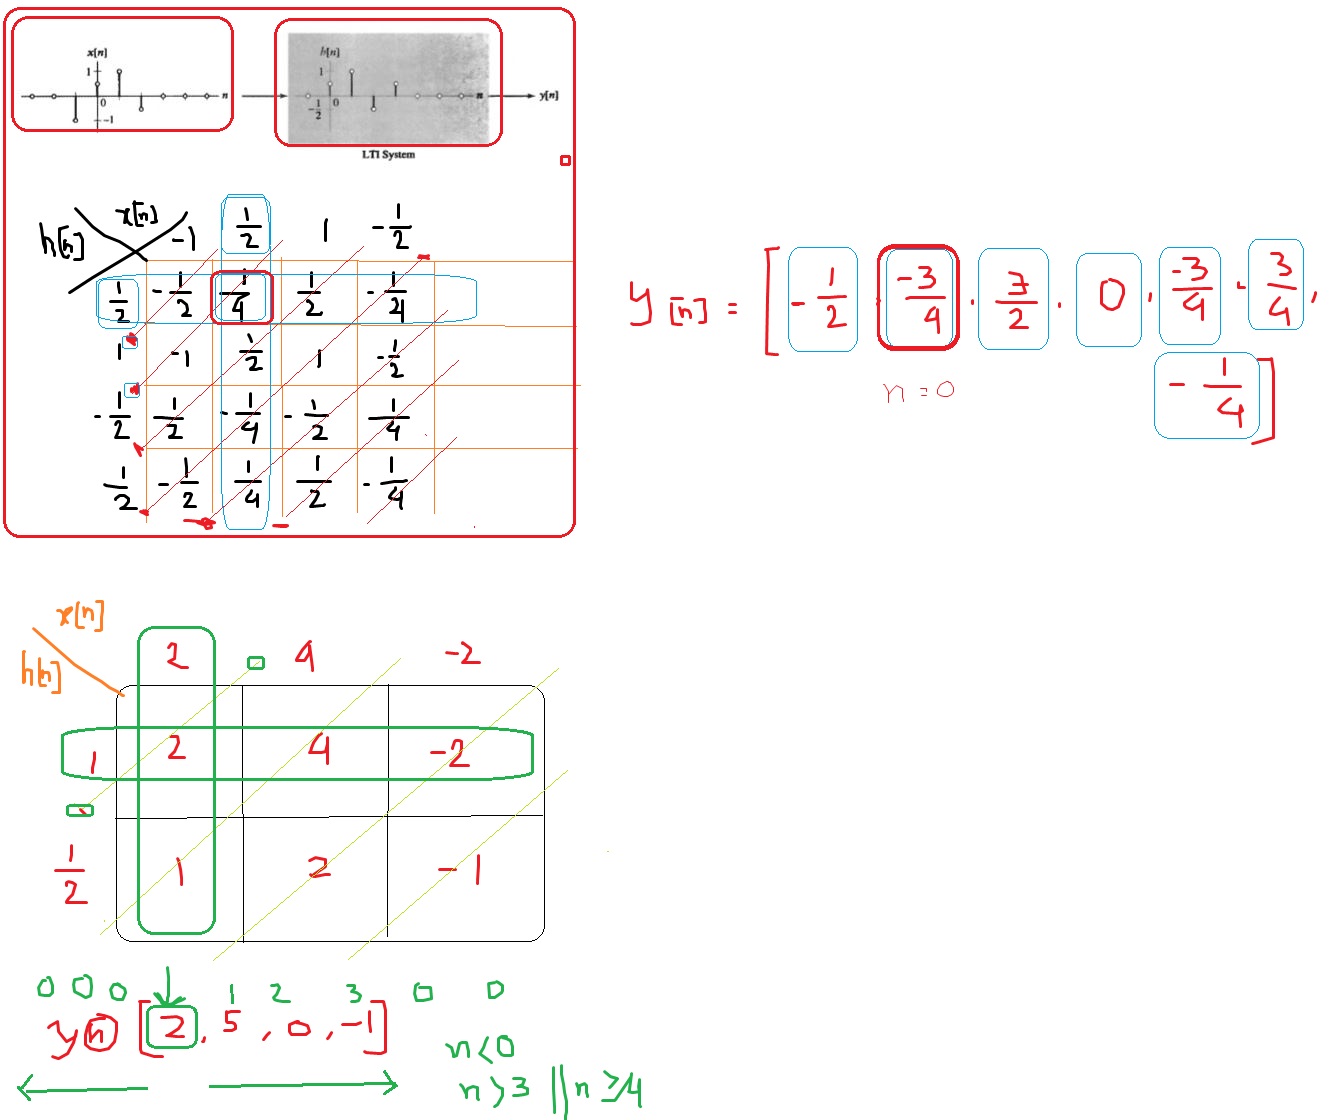 x[n] h[n]
1 1
0 0 n n y[n]
-1 -1/2
LTI System
x[n] -1 1/2 1 -1/2
h[n]
1/2 -1/2 1/4 1/2 -1/4
1 -1 1/2 1 -1/2
-1/2 1/2 -1/4 -1/2 1/4
1/2 -1/2 1/4 1/2 -1/4
y[n] = [ -1/2 . -3/4 . 7/2 . 0 , -3/4 . 3/4 ,
-1/4 ]
n=0
x[n]
h[n] 2 4 -2
1 2 4 -2
1/2 1 2 -1
0 0 0 ↓ 1 2 3 0 0
y n [ 2 , 5 , 0 , -1 ]
n<0
n>3 || n≥4